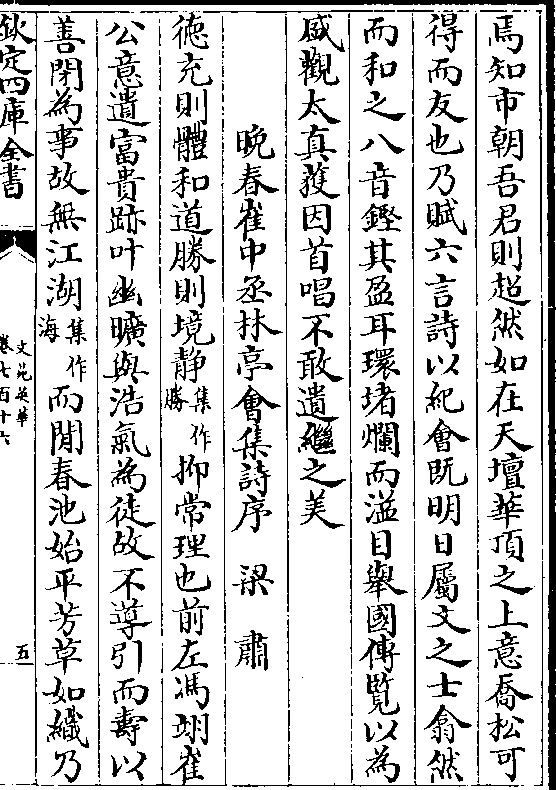 焉知市朝吾君則超然如在天壇華頂之上意喬松可
得而友也乃賦六言詩以紀會既明日屬文之士翕然
而和之八音鏗其盈耳環堵爛而溢目舉國傳覽以為
盛觀太真獲因首唱不敢遺繼之美
晚春崔中丞林亭會集詩序 梁肅
徳充則體和道勝則境靜集作勝抑常理也前左馮翊崔
公意遺富貴跡叶幽曠與浩氣為徒故不導引而壽以
善閉為事故無江湖集作海而閒春池始平芳草如織乃
欽定四庫全書
文苑英華
卷七百十六
五